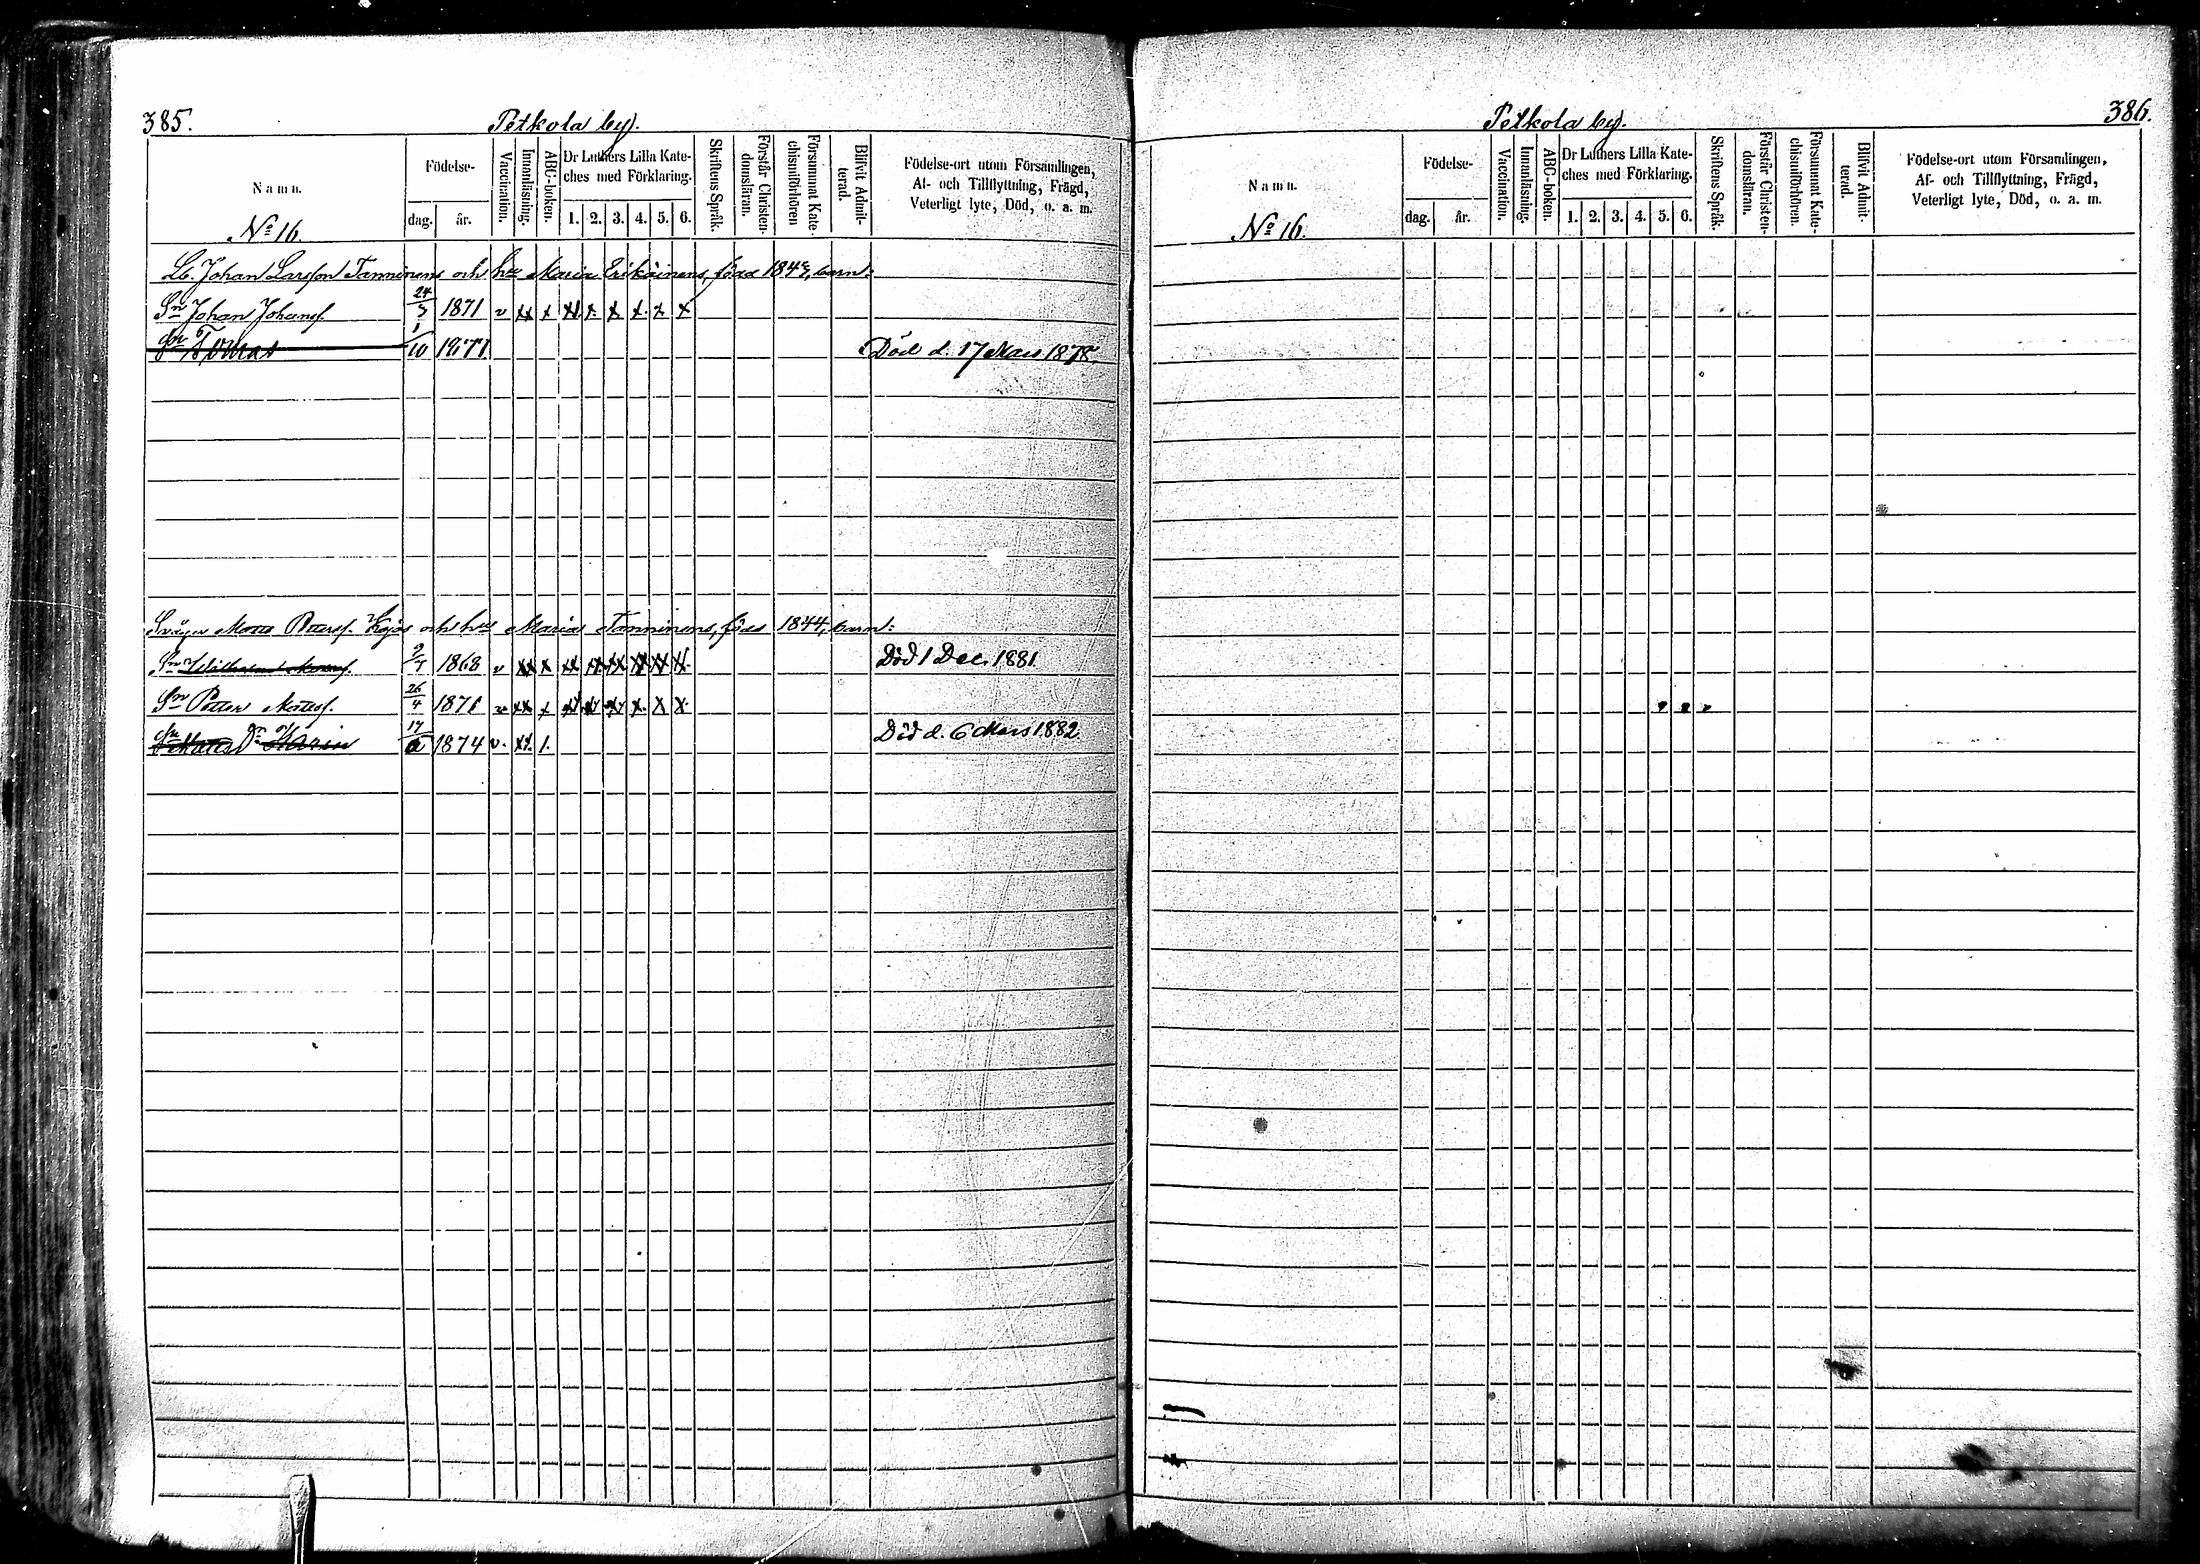 385.
Petkola by.
Namn.
No 16.
Födelse-
dag.
år.
Vaccination.
Innanläsning.
ABC-boken.
Dr Luthers Lilla Kate-
ches med Förklaring.
1. 2. 3. 4. 5. 6.
Skriftens Språk.
Förstår Christen-
domsläran.
Försummat Kate-
chismiförhören
Blifvit Admit-
terad.
Födelse-ort utom Församlingen,
Af- och Tillflyttning, Frägd,
Veterligt lyte, Död, o. a. m.
Lb. Johan Larsson Tanninens och hu Maria Erikäinens, född 184, barn:
Sn Johan Johansf. 24/3 1871 v xx x x x x x x x
Sn Tomas 1/10 1871 Död d. 17 Mars 1878.
Svåger Matts Pettersf. och hus Maria Tanninens, född 1844, barn:
Sn 1868 v xx x xx xx xx xx xx x Död 1 Dec. 1881
Sn Petter Mattsf. 26/4 1871 v xx x xx x xx x x x
Sn Matts Dr Karin 17 1874 v. xx 1. Död d. 6 Mars 1882
386.
Petkola by.
Namn.
No 16.
Födelse-
dag.
år.
Vaccination.
Innanläsning.
ABC-boken.
Dr Luthers Lilla Kate-
ches med Förklaring.
1. 2. 3. 4. 5. 6.
Skriftens Språk.
Förstår Christen-
domsläran.
Försummat Kate-
chismiförhören.
Blifvit Admit-
terad.
Födelse-ort utom Församlingen,
Af- och Tillflyttning, Frägd,
Veterligt lyte, Död, o. a. m.